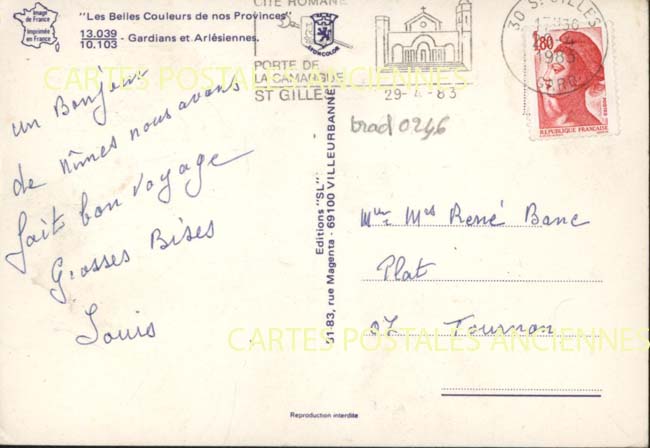 Image de France
Imprimée en France
"Les Belles Couleurs de nos Provinces"
13.039
10.103 - Gardians et Arlésiennes.
CITÉ ROMANE
PORTE DE
LA CAMARGUE
ST GILLES
29-4-83
30 ST GILLES
17H30
1983
GARD
1,80
REPUBLIQUE FRANÇAISE
POSTES
LYONCOLOR
brad0246
CARTES POSTALES ANCIENNES
un Bonjour
de nîmes nous avons
fait bon voyage
Grosses Bises
Louis
Editions "SL"
51-83, rue Magenta - 69100 VILLEURBANNE
René Banc
Plat
07 Tournon
CARTES POSTALES ANCIENNES
Reproduction interdite